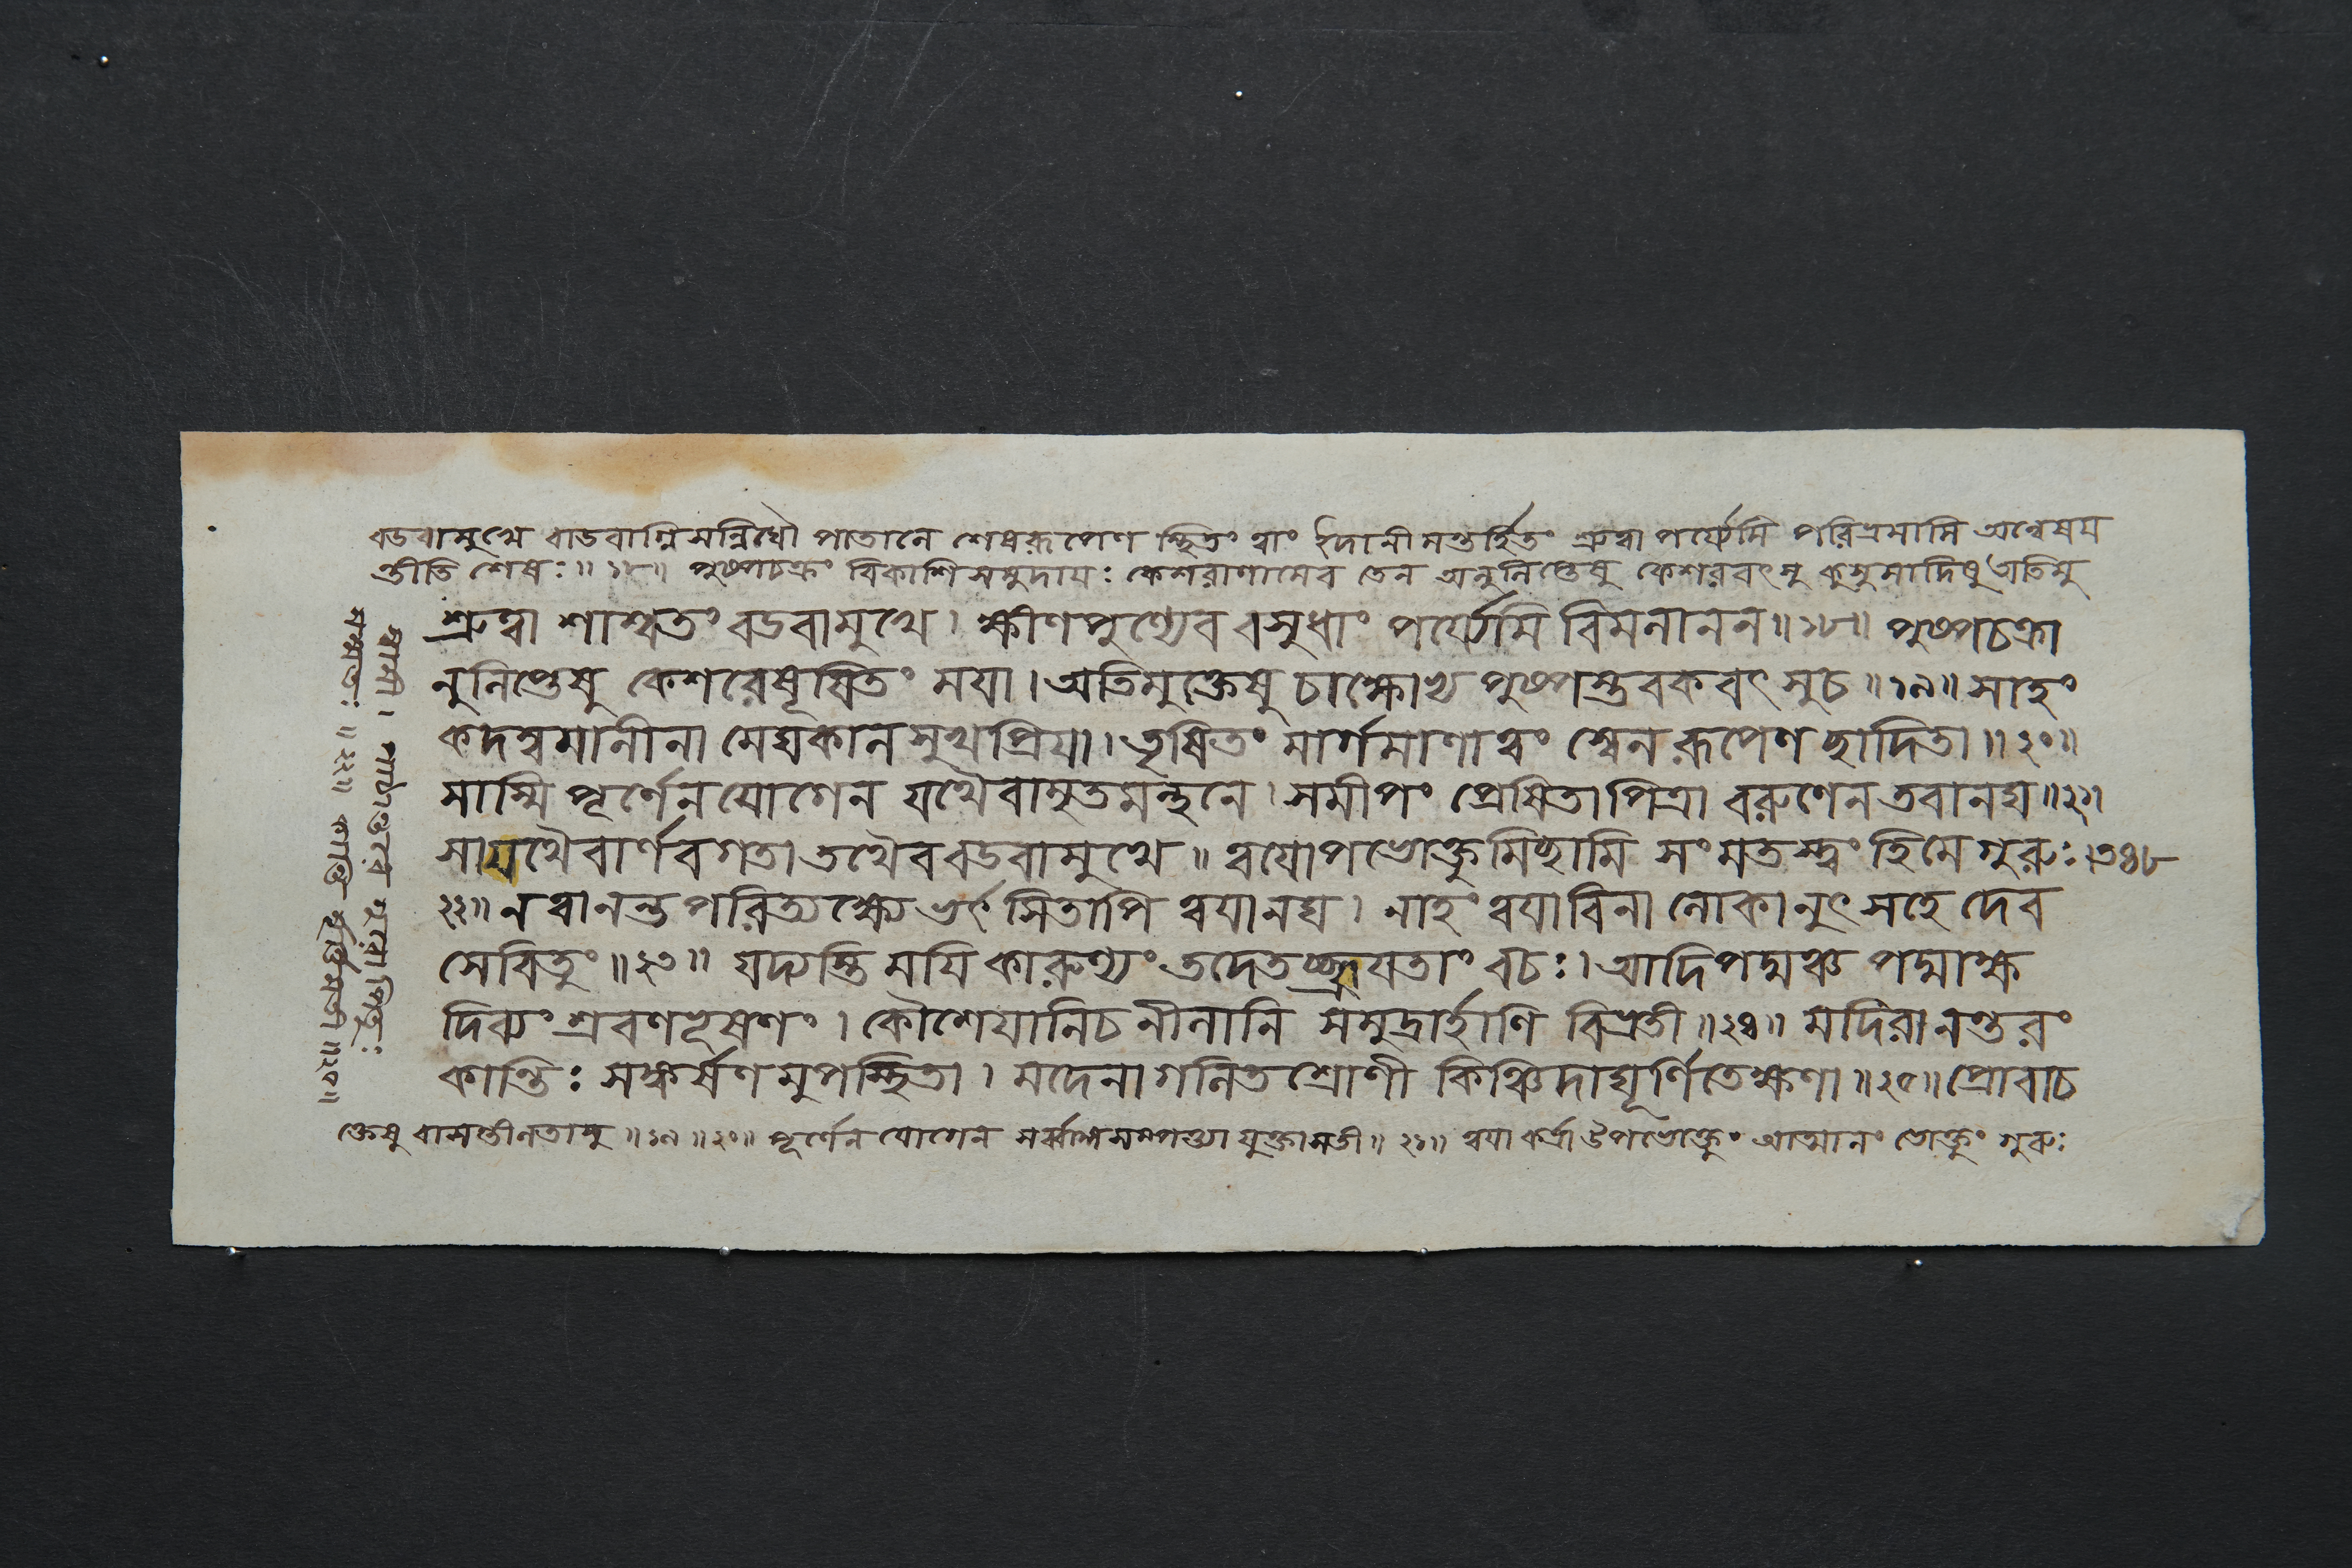 বডবামুখে বাডবাগ্নিসন্নিধৌ পাতালে শেষরূপেণ স্থিতং ত্বাং ইদানীমন্তর্হিতং শ্রুত্বা পর্য্যেমি পরিভ্রমামি অন্বেষয
ন্তীতি শেষঃ॥ ১৮॥ পুষ্পচক্রং বিকাশিসমুদায়ঃ কেশরাণামেব তেন অনুলিপ্তেষু কেশরবৎসু কুসুমাদিষু অতিমু
শ্রুত্বা শাশ্বতং বডবামুখে। ক্ষীণপুণ্যেব বসুধাং পর্য্যেমি বিমলানন॥১৮॥ পুষ্পচক্রা
নুলিপ্তেষু কেশরেষূষিতং ময়া।অতিমুক্তেষু চাক্ষোভ্য পুষ্পস্তবকবৎসুচ॥১৯॥সাহং
কদম্বমালীনা মেঘকালসুখপ্রিয়া।তৃষিতং মার্গমাণাত্বং স্বেনরূপেণছাদিতা॥২০॥
সাস্মি পূর্ণেনযোগেন যথৈবামৃতমন্থনে।সমীপং প্রেষিতাপিত্রা বরুণেনতবানঘ॥২১।
সাযথৈবার্ণবগতা তথৈববডবামুখে॥ ত্বয়োপভোক্তুমিছামি সংমতস্ত্বং হিমে গুরুঃ।৩৪৮
২২॥নত্বানন্তপরিত্যক্ষ্যে ভর্ৎসিতাপি ত্বয়ানঘ। নাহং ত্বয়াবিনা লোকানুৎসহে দেব
সেবিতুং॥২৩॥ যদ্যস্তি ময়ি কারুণ্যং তদেতচ্ছ্রূয়তাং বচঃ।আদিপদ্মঞ্চ পদ্মাক্ষ
দিব্যং শ্রবণভূষণং। কৌশেয়ানিচনীলানি সমুদ্রার্হাণি বিভ্রতী॥২৪॥ মদিরানন্তরং
কান্তিঃ সঙ্কর্ষণমুপস্থিতা। মদেনাগলিতশ্রোণী কিঞ্চিদাঘূর্ণিতেক্ষণা॥২৫॥প্রোবাচ
ক্তেষু বাসন্তীলতাসু॥১৯॥২০॥ পূর্ণেন যোগেন যুক্তাসতী॥ ২১॥ ত্বয়া কর্ত্রা উপভোক্তুং আত্মানং ভোক্তুং গুরুঃ
স্বামী। পাঠান্তরে পিতুঃ
॥২২॥ কান্তি ॥২৫॥